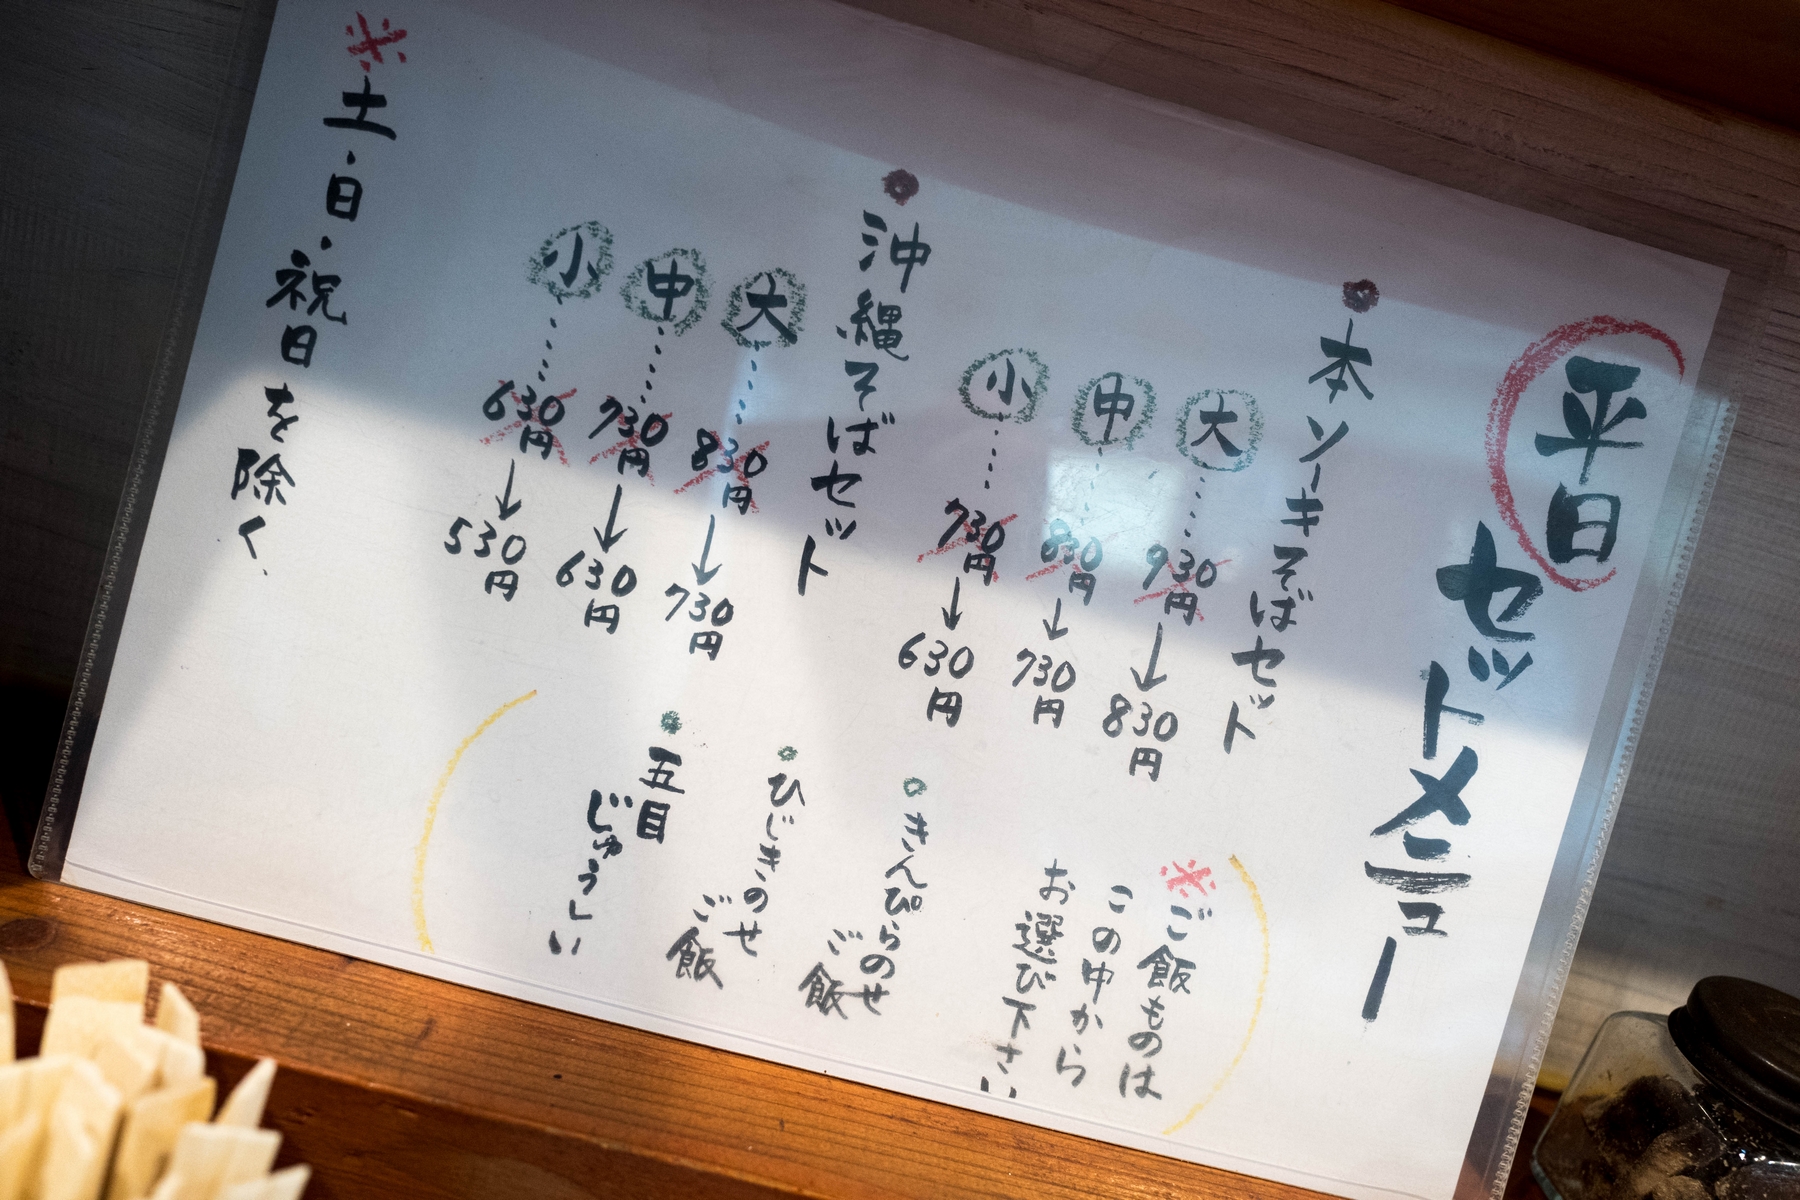 平日セットメニュー
本ソーキそばセット
大……930円→830円
中……830円→730円
小……730円→630円
沖縄そばセット
大……830円→730円
中……730円→630円
小……630円→530円
※ご飯ものは
この中から
お選び下さい
きんぴらのせ
ご飯
ひじきのせ
ご飯
五目
じゅうしい
※土・日・祝日を除く.